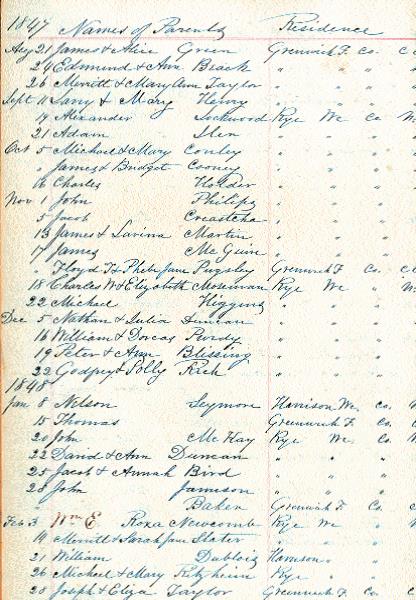 1847 Names of Parents Residence
Aug 21 James & Alice Green Greenwich F. Co. C
24 Edmund & Ann Brack " " "
26 Merritt & Mary Ann Taylor " " "
Sept 11 Larry & Mary Henry " " "
19 Alexander Lockwood Rye We Co
21 Adam " " "
Oct 5 Michael & Mary Conley " " "
" James & Bridget Cooney " " "
16 Charles Holder " " "
Nov 1 John Philips " " "
5 Jacob " " "
13 James & Lavina Martin " " "
17 James Mc Guire " " "
" Floyd T & Phebe Jane Pugsley Greenwich F Co. C
18 Charles W & Elizabeth Moseman Rye We
22 Michael Higgins " " "
Dec 5 Nathan & Julia Duncan " " "
16 William & Dorcas Purdy " " "
19 Peter & Ann Blessing " " "
22 Godfrey & Polly Rich " " "
1848
Jan 8 Nelson Seymore Harrison We. Co.
15 Thomas Greenwich F. Co.
20 John Mc Kay Rye We Co
22 David & Ann Duncan " " "
25 Jacob & Annah Bird " " "
28 John Jamison " " "
" Baker Greenwich F. Co. C
Feb 3 Wm E. Roxa Newcomb Rye We
19 Merritt & Sarah Jane Slater " "
21 William Dublois Harrison "
26 Michael & Mary Rye "
20 Joseph & Eliza Taylor Greenwich F. Co. C